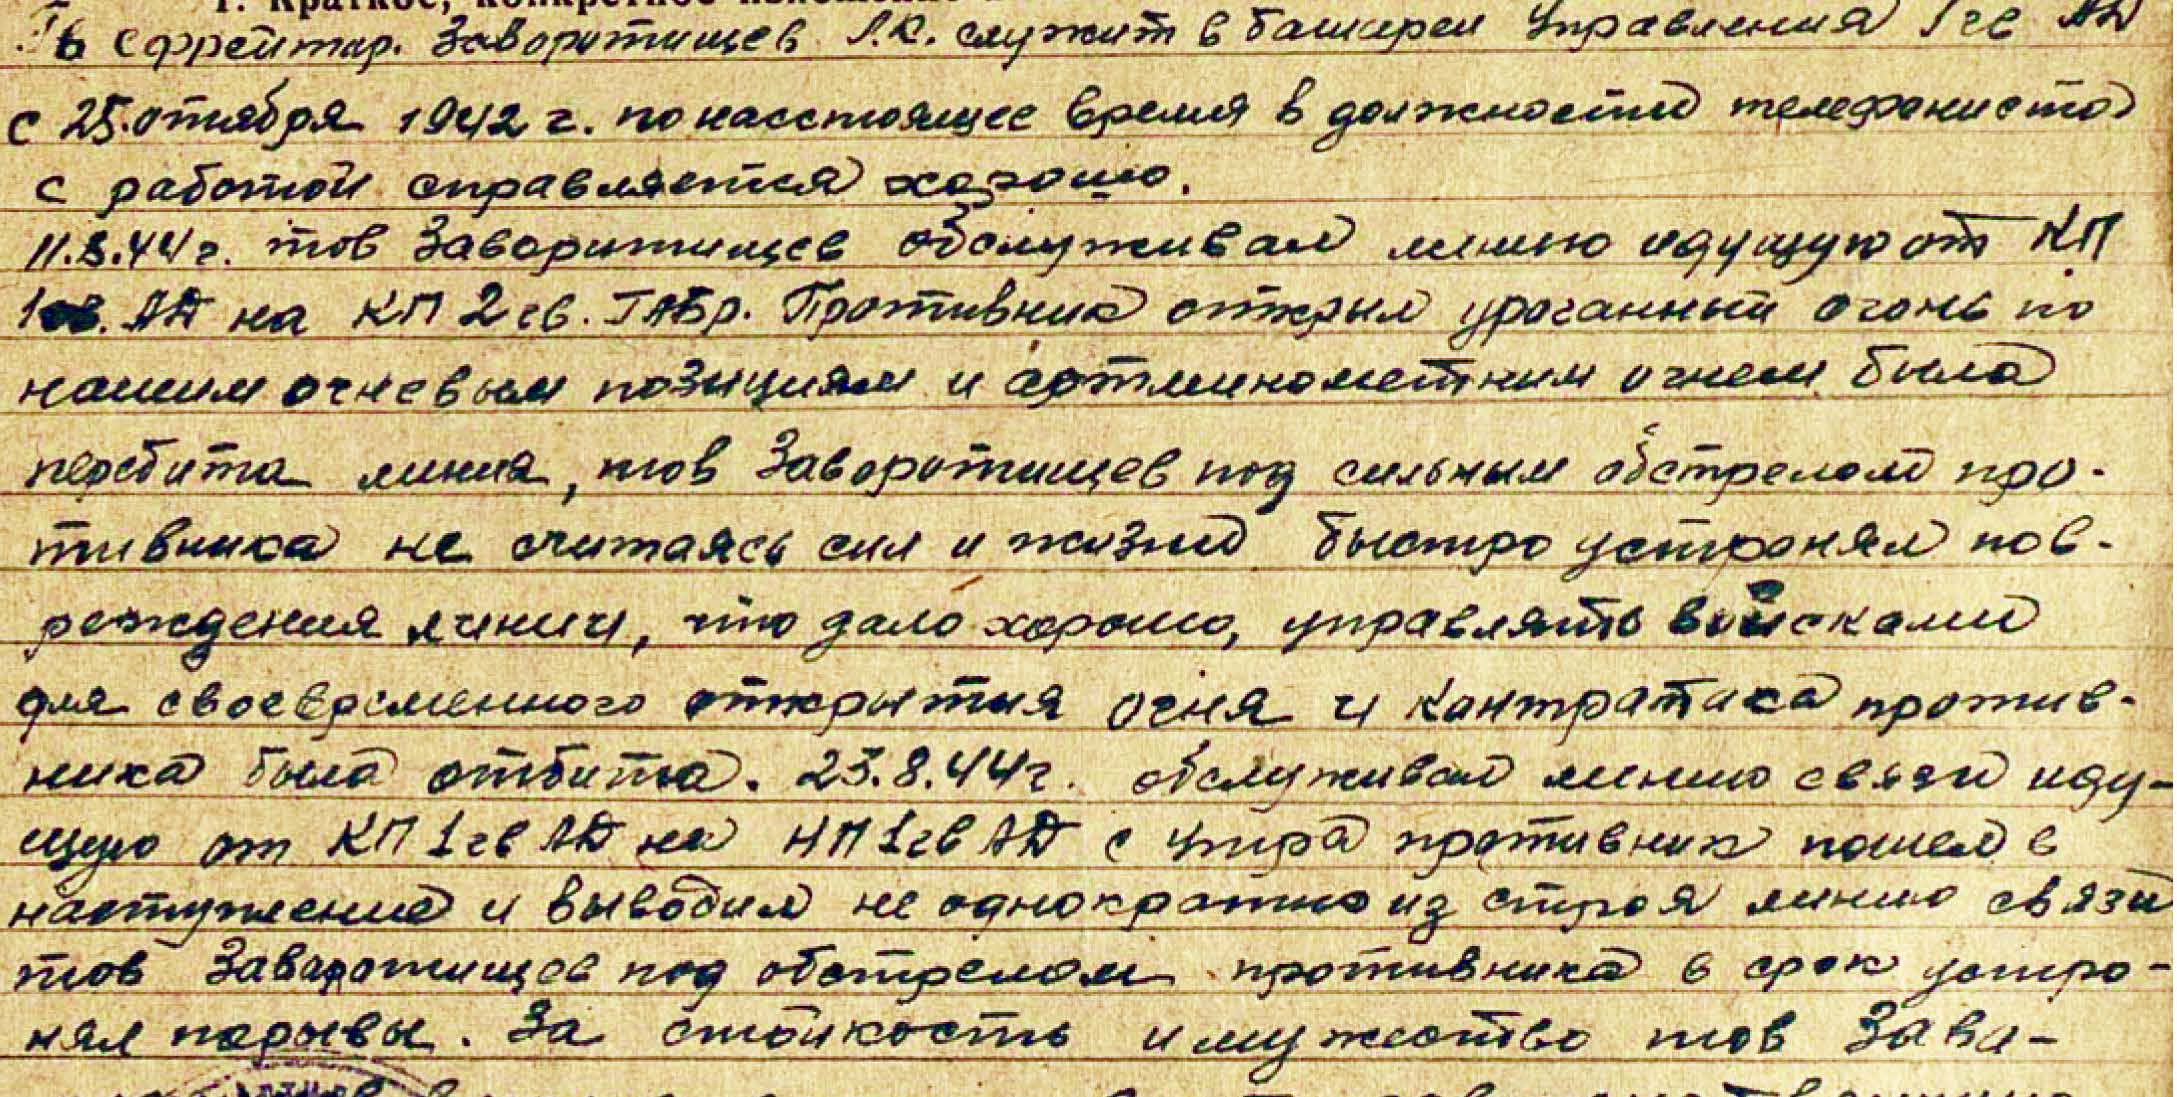 1. Краткое, конкретное
Ефрейтор. Заворотищев Л.К. служит в батареи Управления 1 гв АД
с 25.отября 1942 г. по насстоящее время в должности телефониста
с работой справляется хорошо.
11.8.44 г. тов Заворотищев обслуживал линию идущую от КП
1 гв. АД на КП 2 гв. ГАБр. Противник открыл ураганный огонь по
нашим огневым позициям и артминометним огнем была
перебита линия, тов Заворотищев под сильным обстрелом про-
тивника не считаясь сил и жизни быстро устронял пов-
реждения линии, что дало хорошо, управлять войсками
для своевременного открытия огня и контратака против-
ника была отбита. 23.8.44 г. обслуживал линию связи иду-
щую от КП 1 гв АД на НП 1 гв АД с утра противник пошел в
наступление и выводил не однократно из строя линию связи
тов Заворотищев под обстрелом противника в срок устро-
нял порывы. За стойкость и мужество тов Заво-